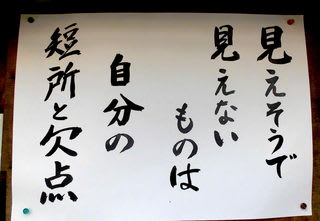 見えそうで
見えない
ものは
自分の
短所と欠点